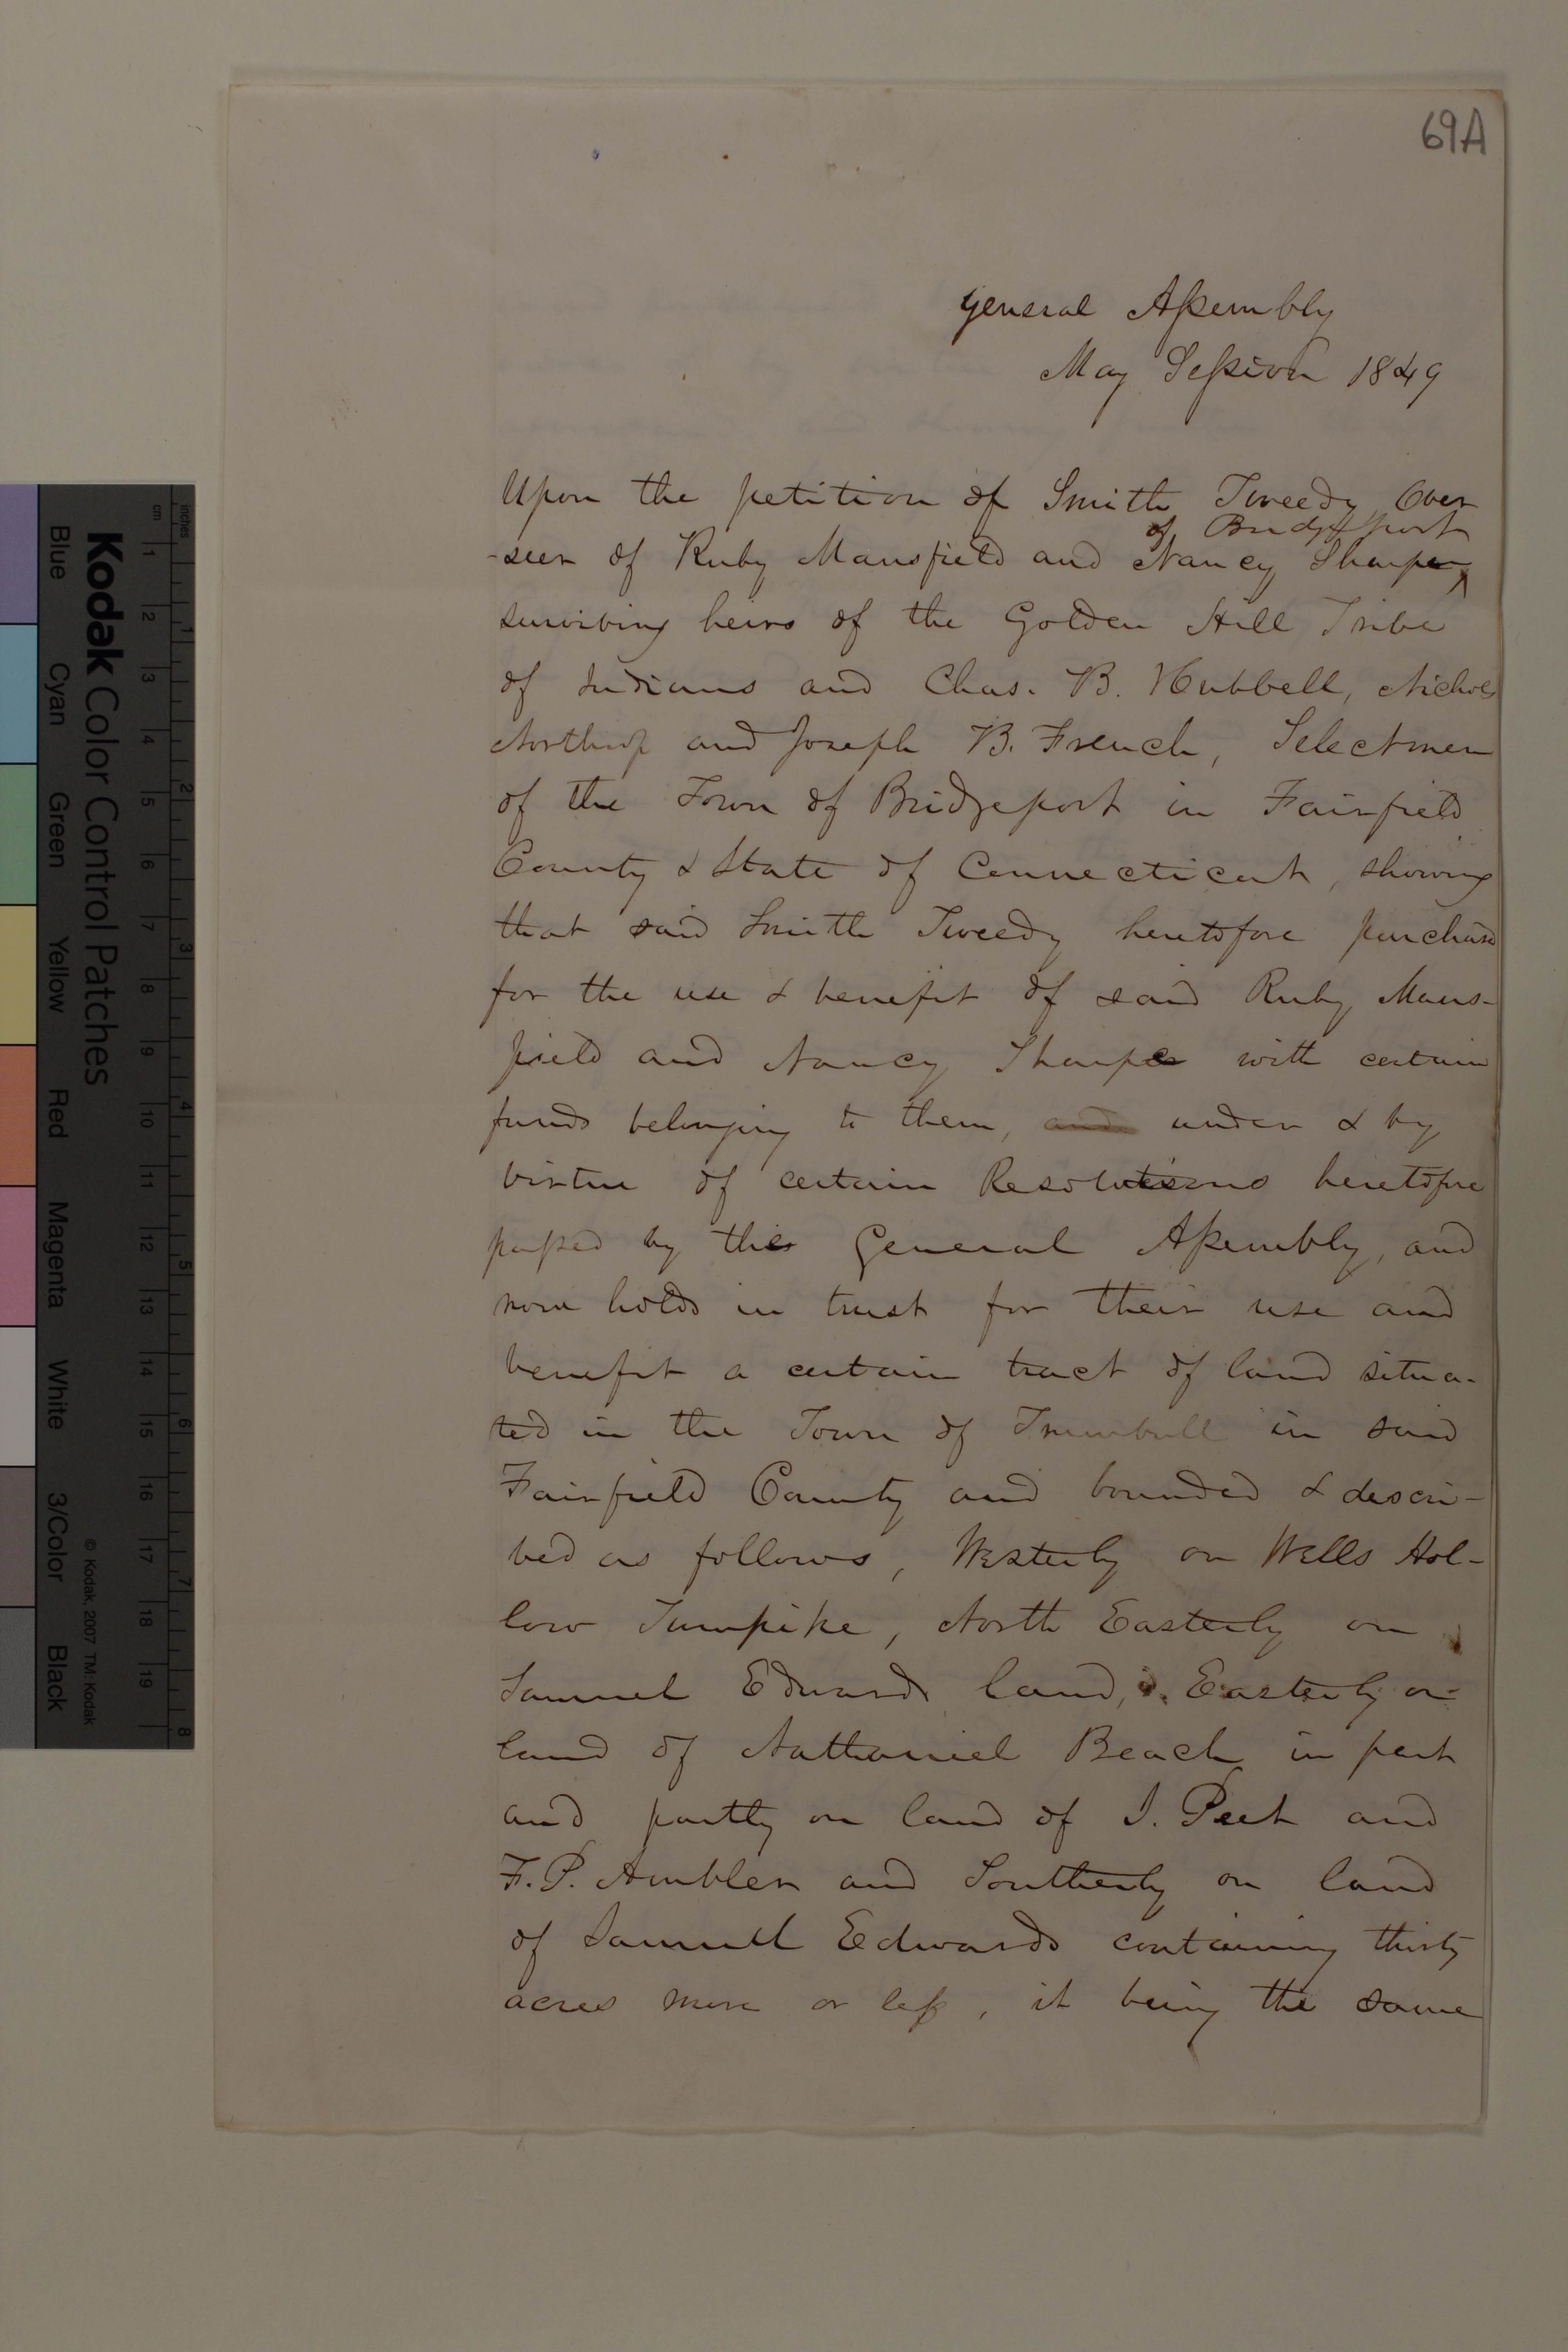 69A
General Assembly
May Session 1849
Upon the petition of Smith Tweedy Over
of Bridgeport
-seer of Ruby Mansfield and Nancy Sharpe
surviving heirs of the Golden Hill Tribe
of Indians and Chas. B. Hubbell, Nichols
Northrop and Joseph B. French, Selectmen
of the Town of Bridgeport in Fairfield
County & State of Connecticut, showing
that said Smith Tweedy heretofore purchased
for the use & benefit of said Ruby Mans-
field and Nancy Sharpe with certain
funds belonging to them, and under & by
virtue of certain Resolutions heretofore
passed by this General Assembly, and
now holds in trust for their use and
benefit a certain tract of land situa-
ted in the Town of Trumbull in said
Fairfield County and bounded & descri-
bed as follows, Westerly on Wells Hol-
low Turnpike, North Easterly on
Samuel Edwards land, Easterly on
land of Nathaniel Beach in part
and partly on land of I. Peet and
F. P. Ambler and Southerly on land
of Samuel Edwards containing thirty
acres more or less, it being the same
Kodak Color Control Patches
Blue Cyan Green Yellow Red Magenta White 3/Color Black
© Kodak, 2007 TM: Kodak
inches 1 2 3 4 5 6 7 8
cm 1 2 3 4 5 6 7 8 9 10 11 12 13 14 15 16 17 18 19